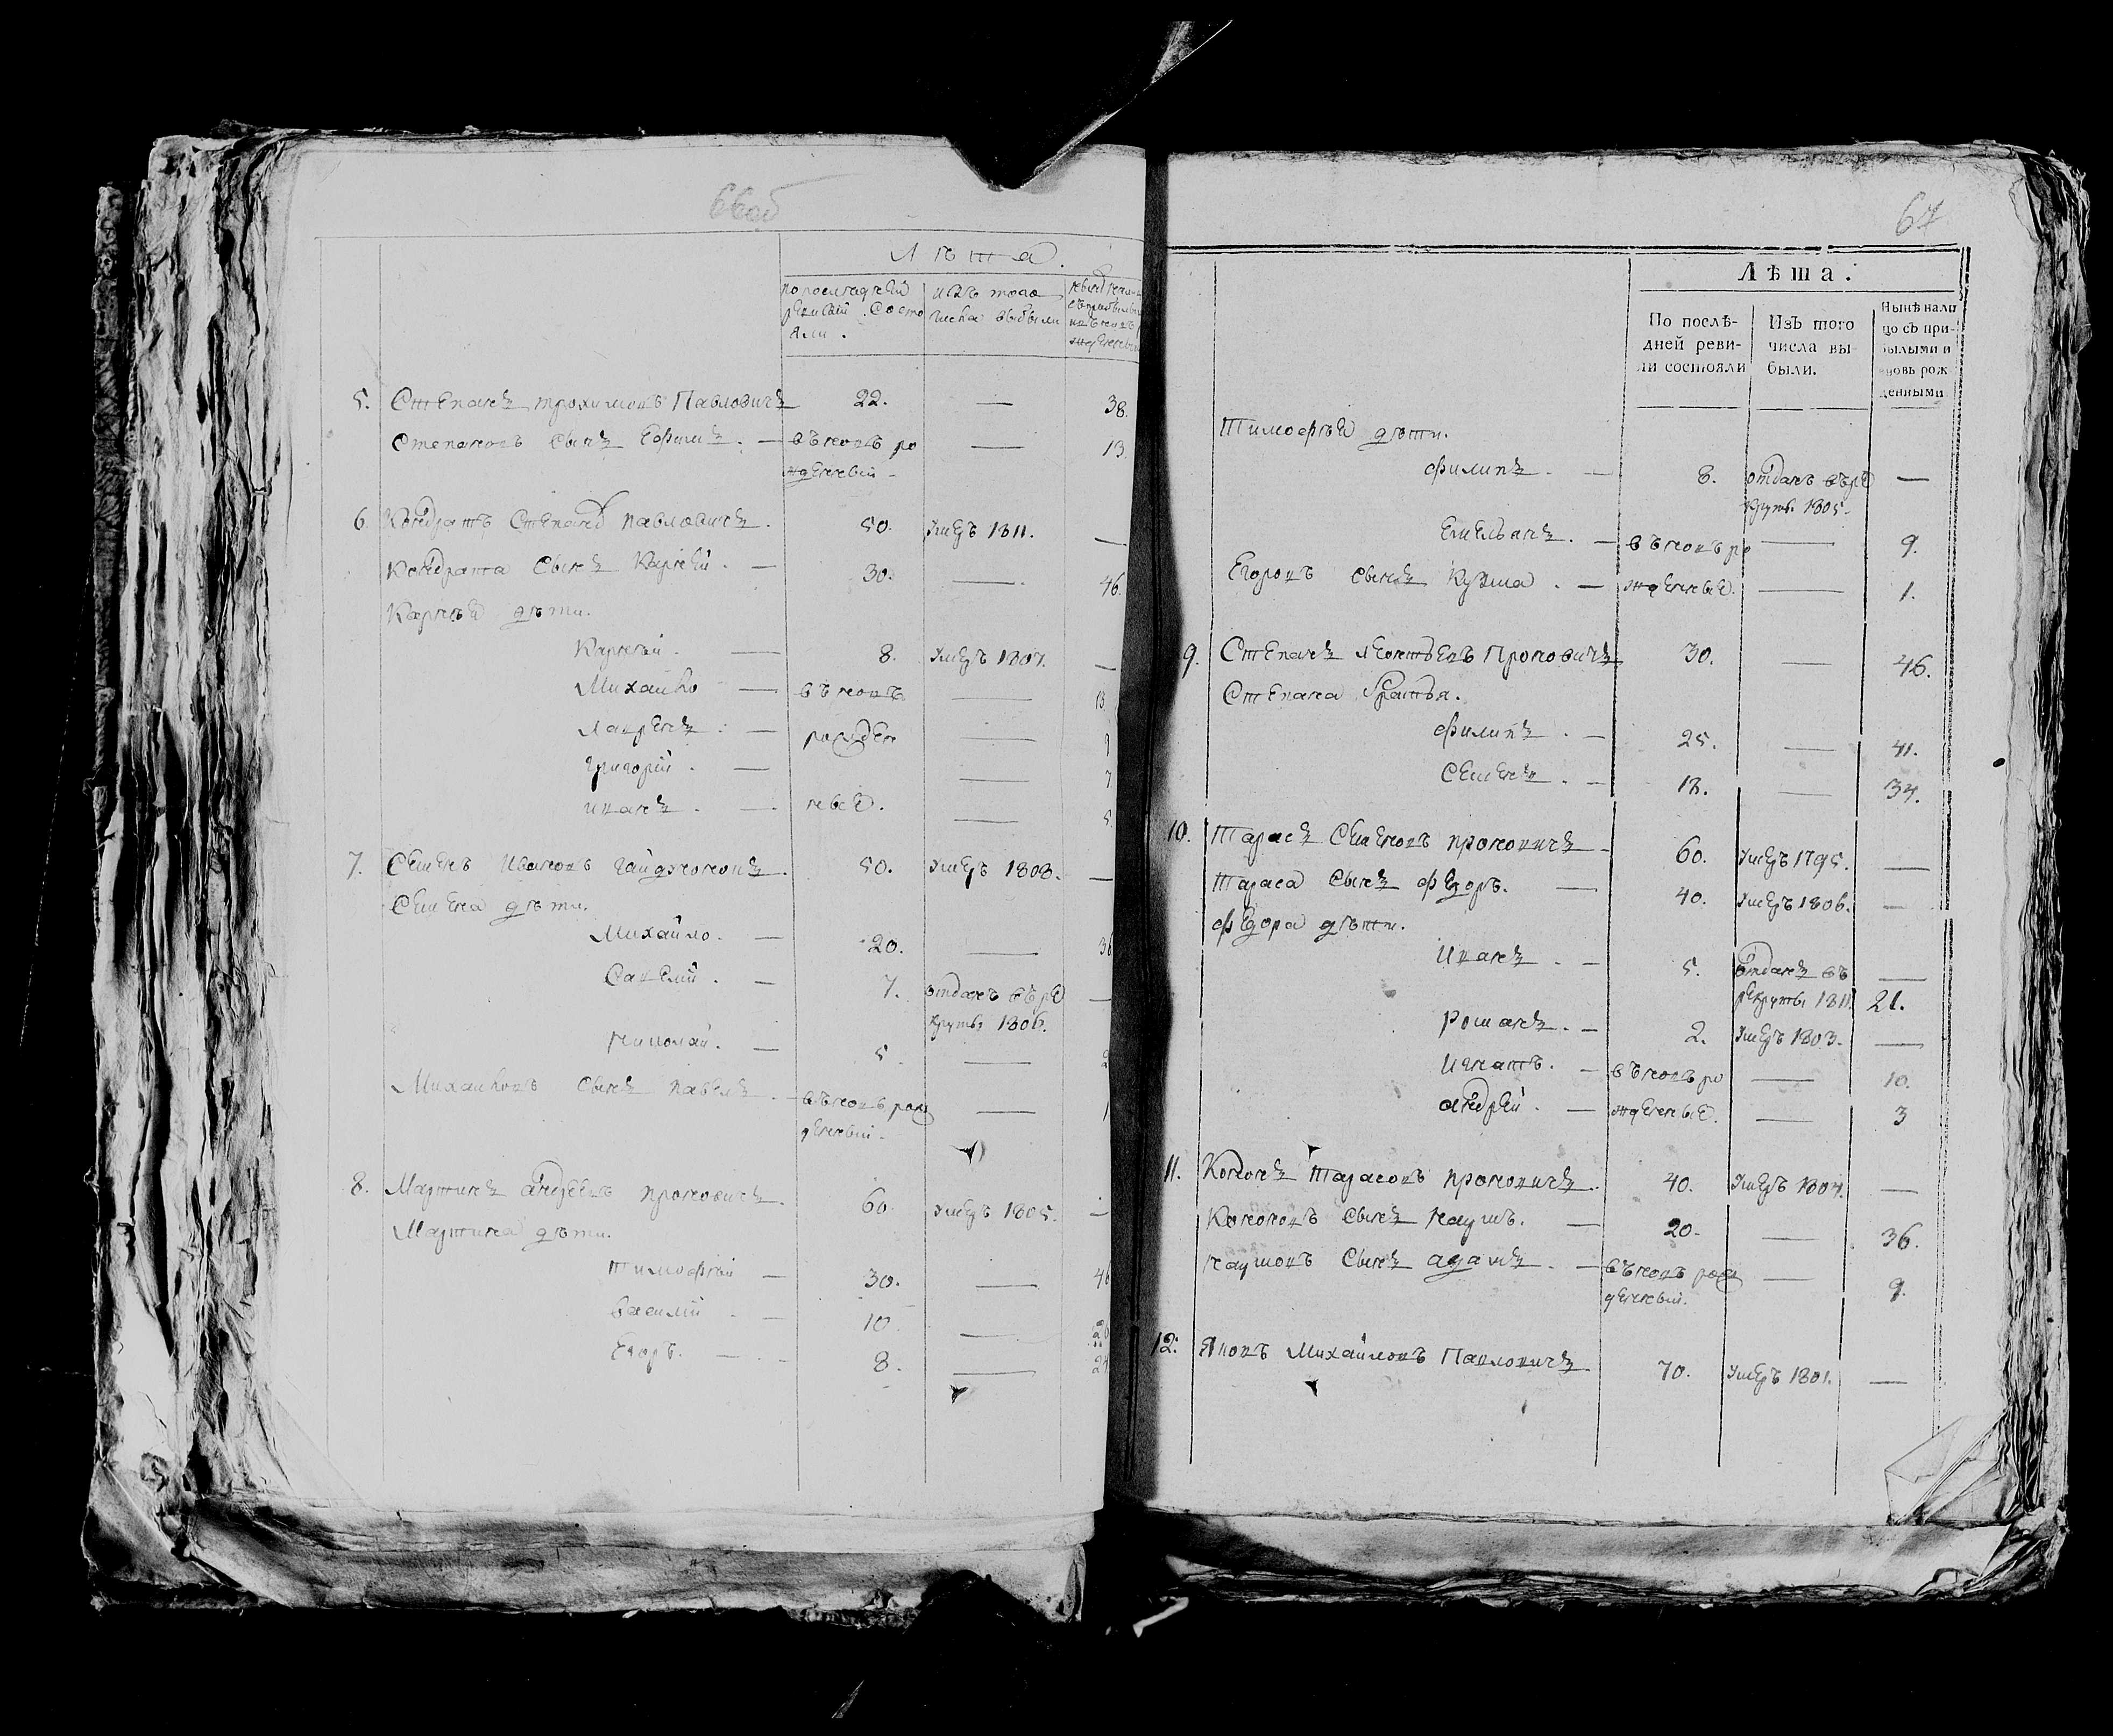 66об
Лѣта.
По последней
ревизии Состо
яли.
изъ того
числа выбыли
5. Степанъ трохимовъ Павловичъ 22. — 38.
Степановъ Сынъ Ефимъ. — въновь ро — 13.
жденный
6. Кондратъ Степановъ павловичъ. 50. Умеръ 1811. —
Кондрата Сынъ Карней. — 30. — 46.
Карнея дѣти.
Карней. — 8. Умеръ 1807. —
Михайло — въновь — 13.
Лавренъ. — рожден — 9
григорий. — — 7
иванъ. — ные. — 5.
7. Семенъ Ивановъ гайдуконокъ. 50. Умеръ 1808. —
Семена дѣти.
Михайло. — 20. — 36
Савелий. — 7. отданъ въ ре —
круты 1806.
Николай. — 5. —
Михайловъ Сынъ павелъ. — въновь рож — 1
денный.
8. Мартинъ андреевъ проновичъ 60. умеръ 1805. —
Мартина дѣти.
тимофей — 30. — 46
василий. — 10. — 26
Егоръ. — 8. — 24
67
Лѣта.
По послѣ-
дней реви-
зіи состояли
Изъ того
числа вы-
были.
Нынѣ нали
цо съ при-
былыми и
вновь рож
денными.
Тимофея дѣти.
филипъ. — 8. отданъ въ ре —
круты 1805.
Емельянъ. — въновь ро — 9.
Егоровъ сынъ Кузма. — жденные. — 1.
9. Степанъ леонтьевъ Проновичъ 30. — 46.
Степана братья.
филипъ. — 25. — 41.
Семенъ. — 18. — 34.
10. Тарасъ Семеновъ проновичъ. 60. Умеръ 1795. —
Тараса Сынъ федоръ. — 40. Умеръ 1806. —
федора дѣти.
Иванъ. — 5. отданъ въ —
рекруты 1811. 21.
романъ. — 2. Умеръ 1803. —
Игнатъ. — въновь ро — 10.
андрей. — жденные. — 3
11. Кононъ Тарасовъ проновичъ. 40. Умеръ 1807. —
Кононовъ Сынъ наумъ. — 20. — 36.
наумовъ Сынъ адамъ. — въновь рож — 9.
денный.
12. Яковъ Михайловъ Павловичъ 70. Умеръ 1801. —